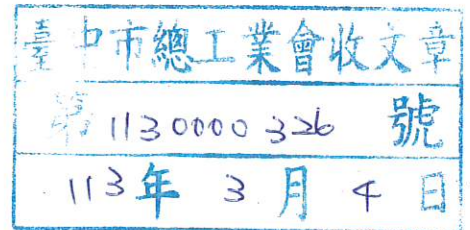 臺中市總工業會收文章
第1130000326號
113年3月4日